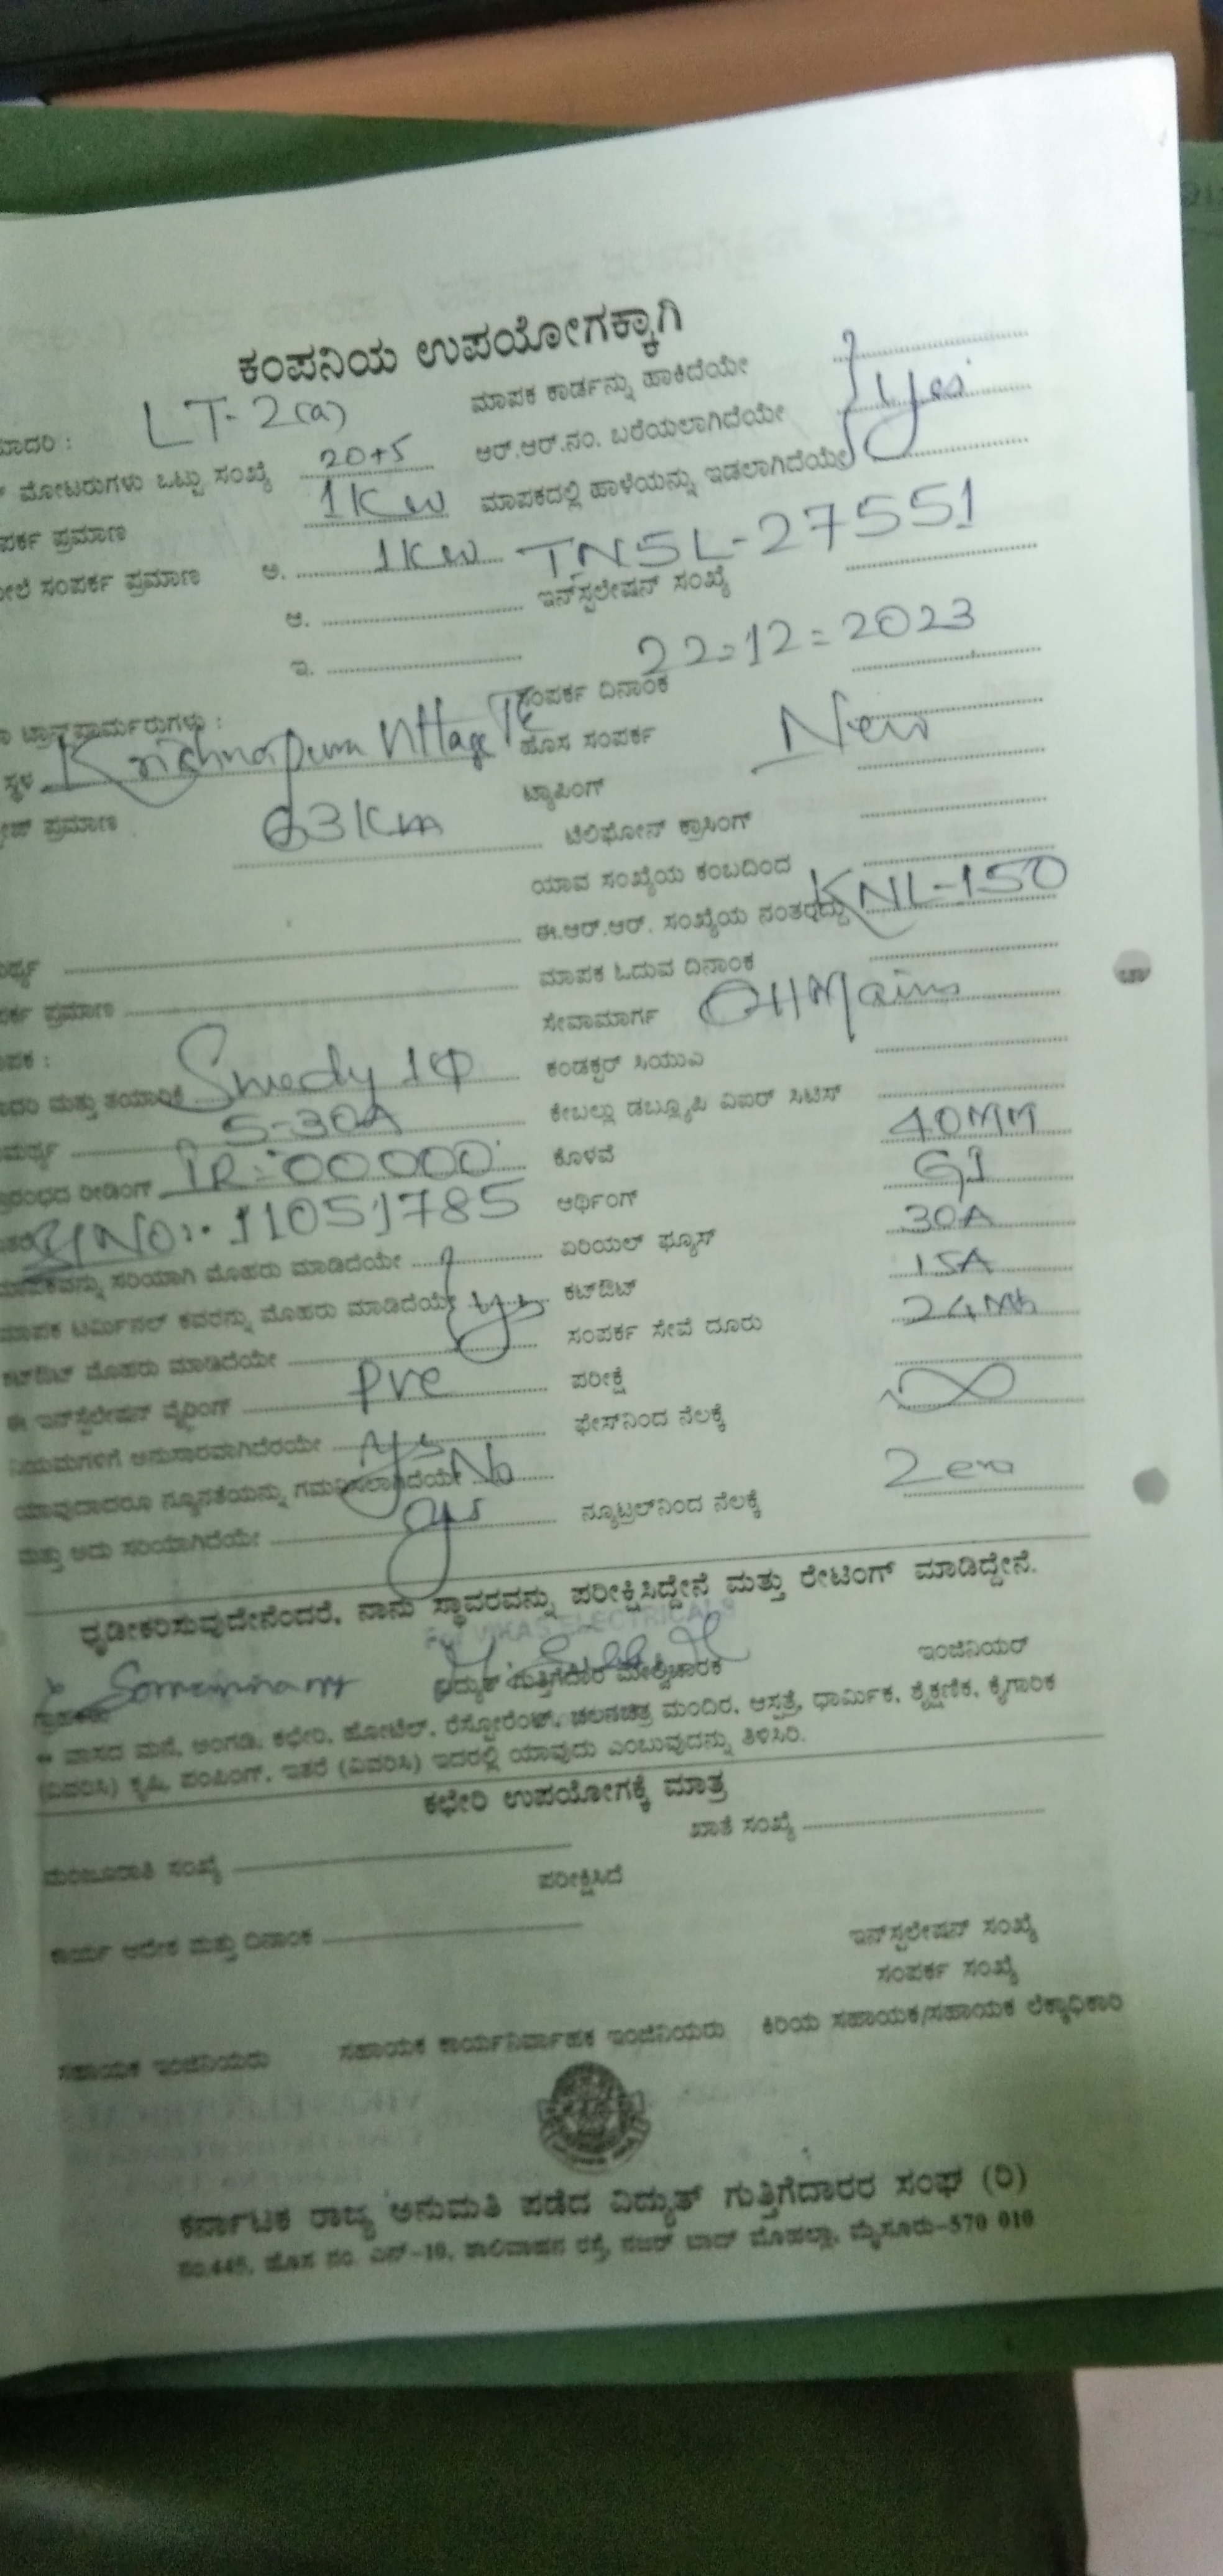 ಕಂಪನಿಯ ಉಪಯೋಗಕ್ಕಾಗಿ
LT-2(a) ಮಾಪಕ ಕಾರ್ಡನ್ನು ಹಾಕಿದೆಯೇ
ಮೋಟರುಗಳು ಒಟ್ಟು ಸಂಖ್ಯೆ 20+5 ಆರ್.ಆರ್.ನಂ. ಬರೆಯಲಾಗಿದೆಯೇ Yes
ಪ್ರಮಾಣ 1KW ಮಾಪಕದಲ್ಲಿ ಹಾಳೆಯನ್ನು ಇಡಲಾಗಿದೆಯೇ
ಸಂಪರ್ಕ ಪ್ರಮಾಣ ಅ. 1KW TNSL-27551
ಆ. ಇನ್‌ಸ್ಟಲೇಷನ್ ಸಂಖ್ಯೆ
ಇ. 22=12=2023
ಸಂಪರ್ಕ ದಿನಾಂಕ
ಸ್ಥಳ Krishnapura Village ಹೊಸ ಸಂಪರ್ಕ New
ಟ್ಯಾಪಿಂಗ್
ಪ್ರಮಾಣ ಟೆಲಿಫೋನ್ ಕ್ರಾಸಿಂಗ್
ಯಾವ ಸಂಖ್ಯೆಯ ಕಂಬದಿಂದ
ಈ.ಆರ್.ಆರ್. ಸಂಖ್ಯೆಯ ನಂತರದ್ದು KNL-150
ಪ್ರಮಾಣ ಮಾಪಕ ಓದುವ ದಿನಾಂಕ
ಸೇವಾಮಾರ್ಗ OH Mains
ಮತ್ತು ತಯಾರಿಕೆ 1Φ ಕಂಡಕ್ಟರ್ ಸಿಯುಎ
5-30A ಕೇಬಲ್ಲು ಡಬ್ಲ್ಯೂಪಿ ವಿಐರ್ ಸಿಟಿಸ್
ರೀಡಿಂಗ್ IR=00000 ಕೊಳವೆ 40MM
Sl No:- 11051785 ಅರ್ಥಿಂಗ್ GI
ಸರಿಯಾಗಿ ಮೊಹರು ಮಾಡಿದೆಯೇ ಏರಿಯಲ್ ಫ್ಯೂಸ್ 30A
ಮಾಪಕ ಟರ್ಮಿನಲ್ ಕವರನ್ನು ಮೊಹರು ಮಾಡಿದೆಯೇ yes ಕಟ್‌ಔಟ್ 15A
ಕಟ್‌ಔಟ್ ಮೊಹರು ಮಾಡಿದೆಯೇ ಸಂಪರ್ಕ ಸೇವೆ ದೂರು
ಈ ಇನ್‌ಸ್ಟಲೇಷನ್ ವೈರಿಂಗ್ PVC ಪರೀಕ್ಷೆ
ನಿಯಮಗಳಿಗೆ ಅನುಸಾರವಾಗಿದೆರಯೇ yes ಫೇಸ್‌ನಿಂದ ನೆಲಕ್ಕೆ ∞
ಯಾವುದಾದರೂ ನ್ಯೂನತೆಯನ್ನು ಗಮನಿಸಲಾಗಿದೆಯೇ No
ಮತ್ತು ಅದು ಸರಿಯಾಗಿದೆಯೇ yes ನ್ಯೂಟ್ರಲ್‌ನಿಂದ ನೆಲಕ್ಕೆ Zero
ಧೃಡೀಕರಿಸುವುದೇನೆಂದರೆ, ನಾನು ಸ್ಥಾವರವನ್ನು ಪರೀಕ್ಷಿಸಿದ್ದೇನೆ ಮತ್ತು ರೇಟಿಂಗ್ ಮಾಡಿದ್ದೇನೆ.
For VIKAS ELECTRICALS
ವಿದ್ಯುತ್ ಗುತ್ತಿಗೆದಾರ ಮೇಲ್ವಿಚಾರಕ ಇಂಜಿನಿಯರ್
ವಾಸದ ಮನೆ, ಅಂಗಡಿ, ಕಛೇರಿ, ಹೋಟೆಲ್, ರೆಸ್ಟೋರೆಂಟ್, ಚಲನಚಿತ್ರ ಮಂದಿರ, ಆಸ್ಪತ್ರೆ, ಧಾರ್ಮಿಕ, ಶೈಕ್ಷಣಿಕ, ಕೈಗಾರಿಕ
(ವಿವರಿಸಿ) ಕೃಷಿ, ಪಂಪಿಂಗ್, ಇತರೆ (ವಿವರಿಸಿ) ಇದರಲ್ಲಿ ಯಾವುದು ಎಂಬುವುದನ್ನು ತಿಳಿಸಿರಿ.
ಕಛೇರಿ ಉಪಯೋಗಕ್ಕೆ ಮಾತ್ರ
ಮಂಜೂರಾತಿ ಸಂಖ್ಯೆ ಖಾತೆ ಸಂಖ್ಯೆ
ಪರೀಕ್ಷಿಸಿದೆ
ಕಾರ್ಯ ಆದೇಶ ಮತ್ತು ದಿನಾಂಕ ಇನ್‌ಸ್ಟಲೇಷನ್ ಸಂಖ್ಯೆ
ಸಂಪರ್ಕ ಸಂಖ್ಯೆ
ಸಹಾಯಕ ಇಂಜಿನಿಯರು ಸಹಾಯಕ ಕಾರ್ಯನಿರ್ವಾಹಕ ಇಂಜಿನಿಯರು ಕಿರಿಯ ಸಹಾಯಕ/ಸಹಾಯಕ ಲೆಕ್ಕಾಧಿಕಾರಿ
ಕರ್ನಾಟಕ ರಾಜ್ಯ ಅನುಮತಿ ಪಡೆದ ವಿದ್ಯುತ್ ಗುತ್ತಿಗೆದಾರರ ಸಂಘ (ರಿ)
ನಂ.445, ಹೊಸ ನಂ. ಎನ್-10, ಶಾಲಿವಾಹನ ರಸ್ತೆ, ನಜರ್ ಬಾದ್ ಮೊಹಲ್ಲಾ, ಮೈಸೂರು-570 010